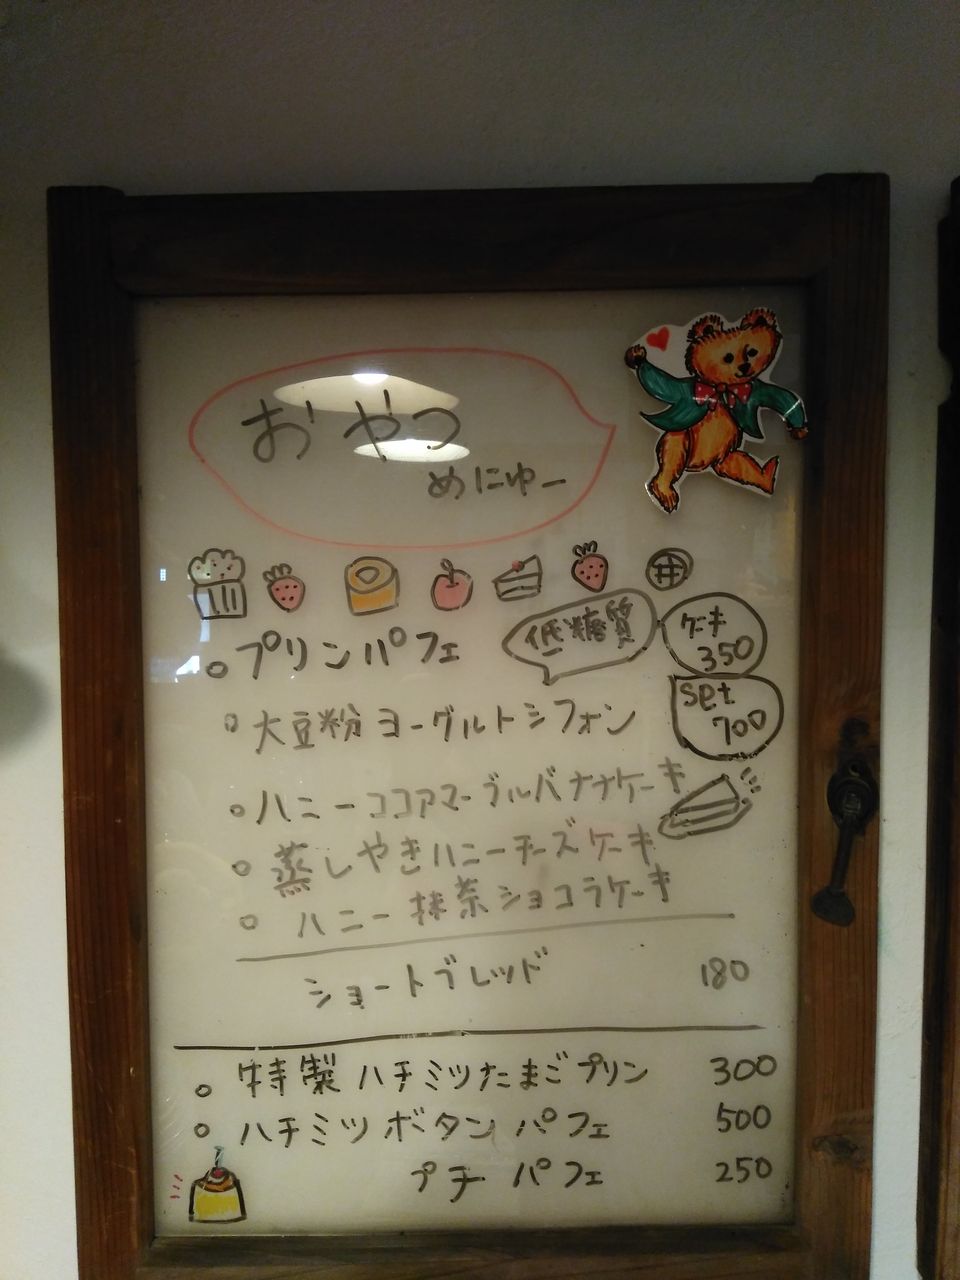 おやつ
めにゅー
プリンパフェ
低糖質
ケーキ
350
set
700
大豆粉ヨーグルトシフォン
ハニーココアマーブルバナナケーキ
蒸しやきハニーチーズケーキ
ハニー抹茶ショコラケーキ
ショートブレッド 180
特製ハチミツたまごプリン 300
ハチミツボタンパフェ 500
プチパフェ 250